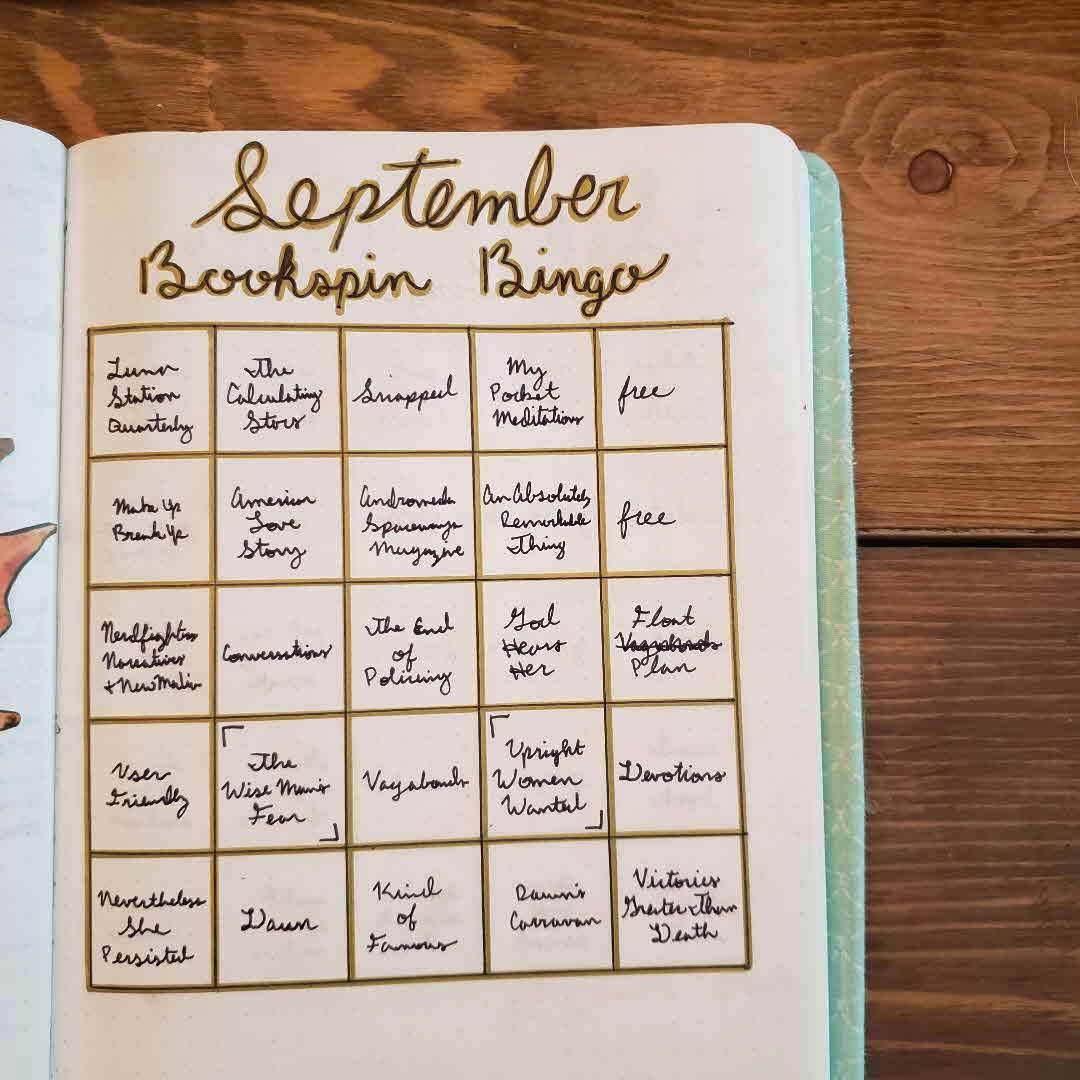 September
Bookspin Bingo
Luna
Station
Quarterly
The
Calculating
Stars
Snapped
My
Pocket
Meditations
free
Make Up
Break Up
American
Love
Story
Andromeda
Spaceways
Magazine
An Absolutely
Remarkable
Thing
free
Nerdfighter
Narratives
+ New Media
Conversations
The End
of
Policing
God
Hears
Her
Float
Vagabonds
Plan
User
Friendly
The
Wise Man's
Fear
Vagabonds
Upright
Women
Wanted
Devotions
Nevertheless
She
Persisted
Dawn
Kind
of
Famous
Carravan
Victories
Greater Than
Death